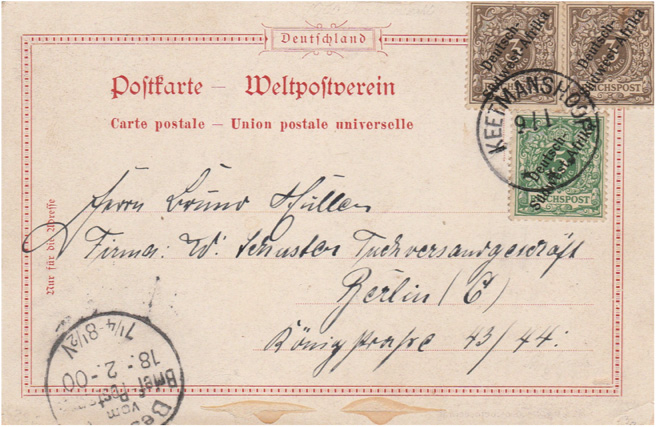 Deutschland
Postkarte – Weltpostverein
Carte postale – Union postale universelle
Deutsch-
Südwest-Afrika
3
REICHSPOST
Deutsch-
Südwest-Afrika
3
REICHSPOST
KEETMANSHOOP
17 1
Deutsch-
Südwest-Afrika
REICHSPOST
Nur für die Adresse
Herrn Bruno Müller
Firma: W. Schuster Tuchversandgeschäft
Berlin (C)
Königstraße 43/44.
Bes
vom
Brief-Postamt
18.-2.-00
7¼-8½V